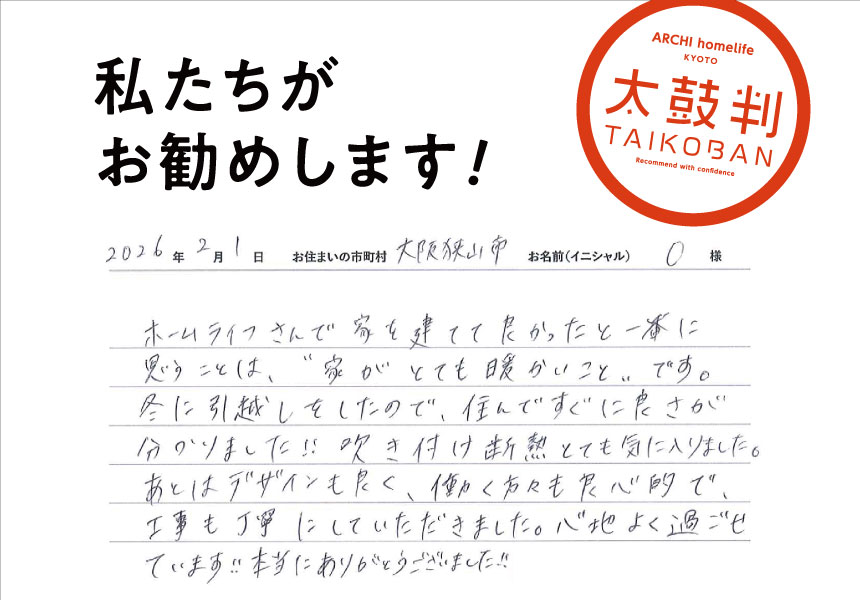 私たちが
お勧めします!
ARCHI homelife
KYOTO
太鼓判
TAIKOBAN
Recommend with confidence
2026年2月1日 お住まいの市町村 大阪狭山市 お名前(イニシャル) O 様
ホームライフさんで家を建てて良かったと一番に
思うことは、〝家がとても暖かいこと〟です。
冬に引越しをしたので、住んですぐに良さが
分かりました!! 吹き付け断熱とても気に入りました。
あとはデザインも良く、働く方々も良心的で、
工事も丁寧にしていただきました。心地よく過ごせ
ています!! 本当にありがとうございました!!